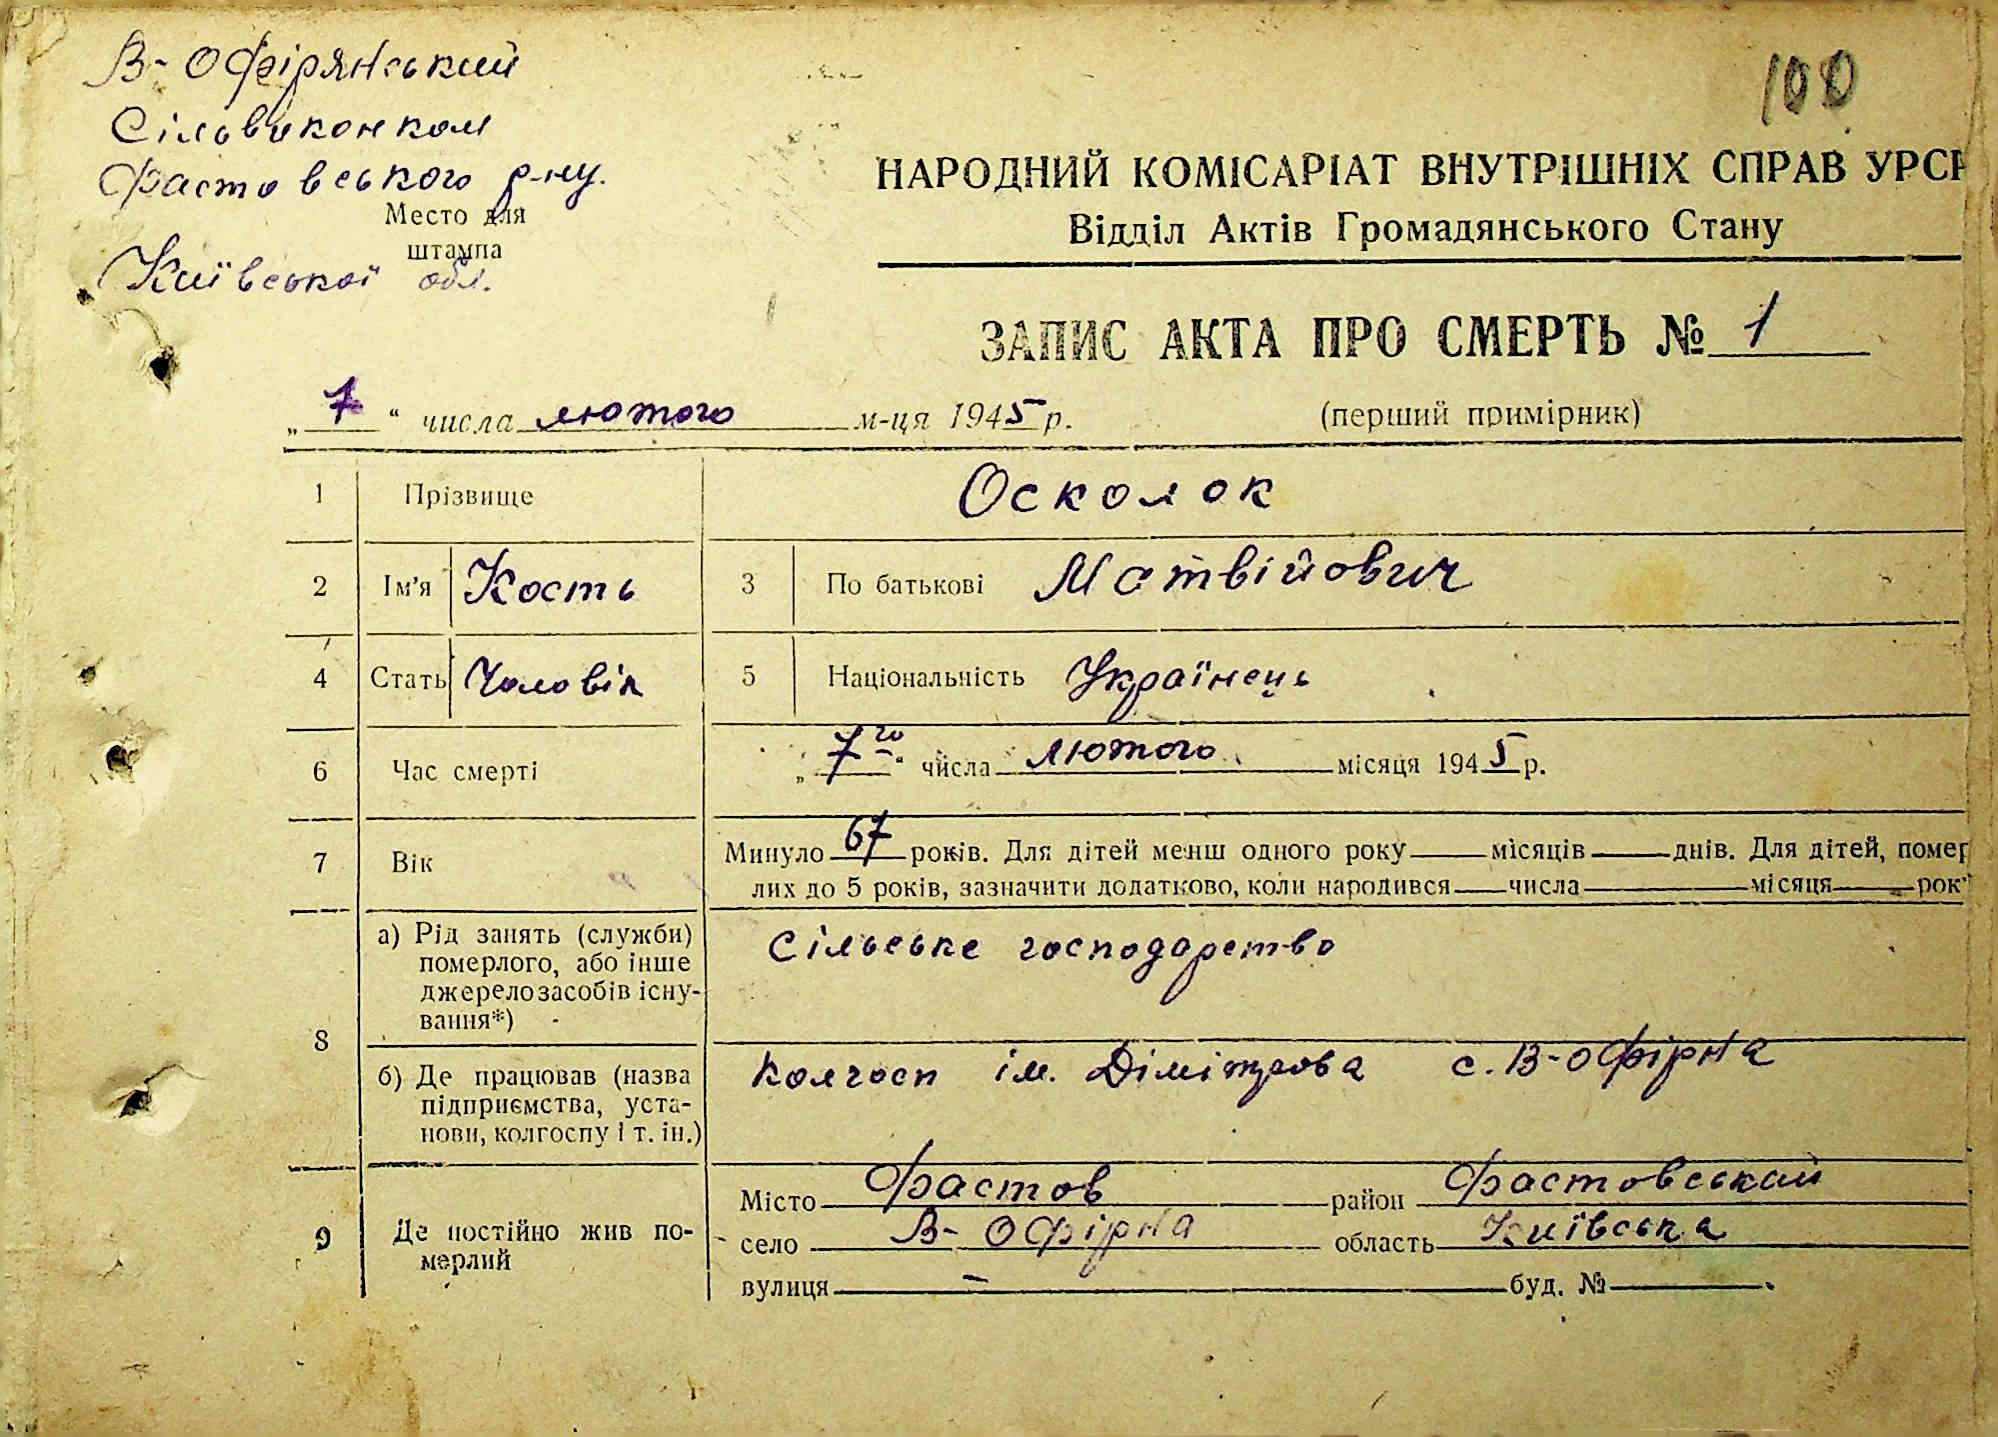 В-Офірянський
Сільвиконком
Фастовського р-ну.
Место для
штампа
Київської обл.
100
НАРОДНИЙ КОМІСАРІАТ ВНУТРІШНІХ СПРАВ УРСР
Відділ Актів Громадянського Стану
ЗАПИС АКТА ПРО СМЕРТЬ № 1
„ 7 “ числа лютого м-ця 1945 р. (перший примірник)
1 Прізвище Осколок
2 Ім'я Кость 3 По батькові Матвійович
4 Стать Чоловік 5 Національність Українець
6 Час смерті „ 7го “ числа лютого місяця 1945 р.
7 Вік Минуло 67 років. Для дітей менш одного року місяців днів. Для дітей, помер
лих до 5 років, зазначити додатково, коли народився числа місяця рок
8 а) Рід занять (служби) Сільське господарство
померлого, або інше
джерело засобів існу-
вання*)
б) Де працював (назва Колгосп ім. Дімітрова с. В-Офірна
підприємства, уста-
нови, колгоспу і т. ін.)
9 Де постійно жив по-
мерлий
Місто Фастов район Фастовський
село В-Офірна область Київська
вулиця — буд. №